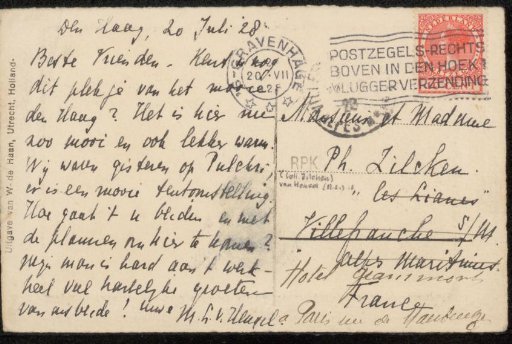 Den Haag, 20 Juli 28.
Beste Vrienden. Kent U nog
dit plekje van het mooie
den Haag? Het is hier nu
zoo mooi en ook lekker warm.
Wij waren gisteren op Pulchri,
er is een mooie tentoonstelling.
Hoe gaat 't u beiden en met
de plannen om hier te komen?
Mijn man is hard aan 't werk -
heel veel hartelijke groeten
van ons beide! uwe
Uitgave van W. de Haan, Utrecht, Holland.
'S-GRAVENHAGE
20 VII
POSTZEGELS RECHTS
BOVEN IN DEN HOEK!
VLUGGER VERZENDING
NEDERLAND
Monsieur et Madame
RPK
Ph. Zilcken
(Coll. Zilcken)
"Les Lianes"
Villefranche s/M
Alpes Maritimes
Hotel
France
Paris rue de